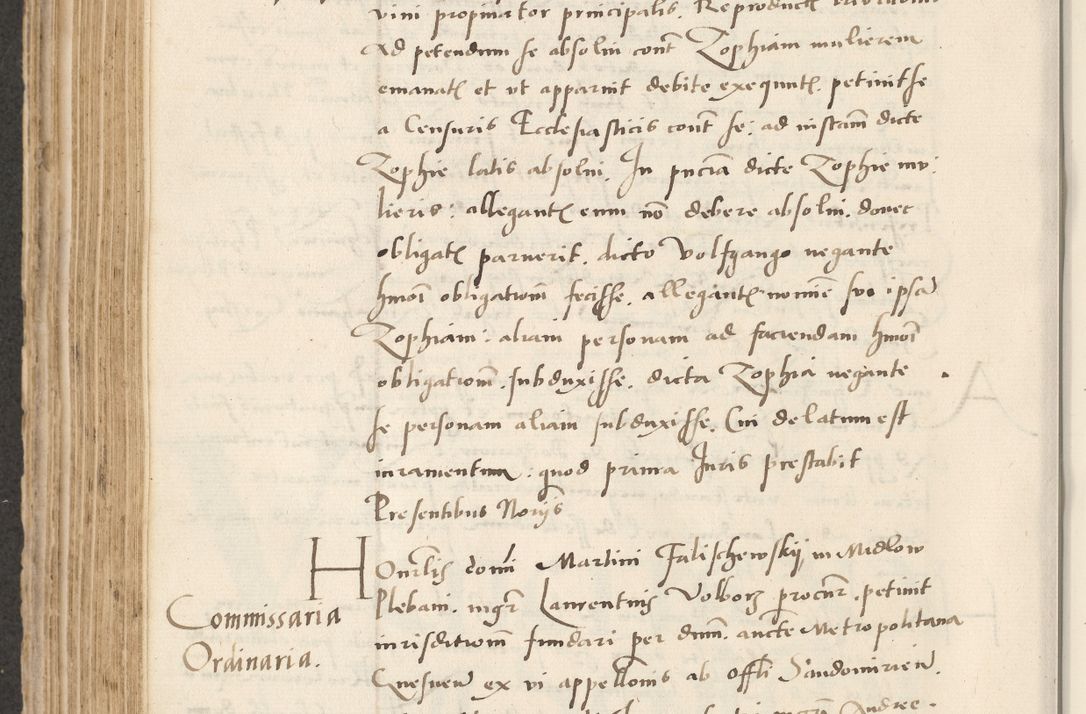 vini propinator principalis. Reproduct
Ad petendum se absolui cont Zophiam mulierem
emanat et vt apparuit debite exequut. petiuit se
a Censuris Ecclesiasticis cont se: ad instam dicte
Zophie latis absolui. In pncia dicte Zophie mu:
lieris: allegant eum no debere absolui. donec
obligat paruerit. dicto Volfgango negante
hmoi obligationem fecisse. allegant nomine suo ipsa
Zophiam: aliam personam ad faciendam hmoi
obligationem subduxisse. dicta Zophia negante
se personam aliam subduxisse. Cui delatum est
iuramentum: quod prima Iuris prestabit
Presentibus Norijs
Honrlis domi Martini Falischewskij in Medlow
Plebani. mgr Laurentius Volborz procur. petiuit
Commissaria
iurisditionem fundari per dnm. aucte Metropolitana
Ordinaria.
Gnesnen ex vi appellonis ab offli Sandomirien.
Andree